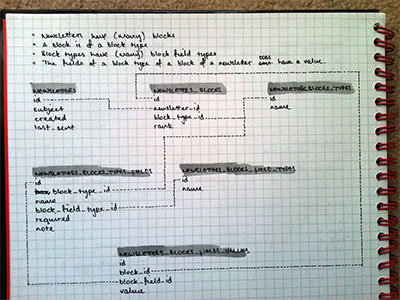 • Newsletters have (many) blocks
• A block is of a block type
• Block types have (many) block field types
• The fields of a block type of a block of a newsletter does have a value.
NEWSLETTERS
id
subject
created
last_sent
NEWSLETTERS_BLOCKS
id
newsletter_id
block_type_id
rank
NEWSLETTERS_BLOCKS_TYPES
id
name
NEWSLETTERS_BLOCKS_TYPES_FIELDS
id
block_type_id
name
block_field_type_id
required
note
NEWSLETTERS_BLOCKS_FIELD_TYPES
id
name
NEWSLETTERS_BLOCKS_FIELDS_VALUES
id
block_id
block_field_id
value